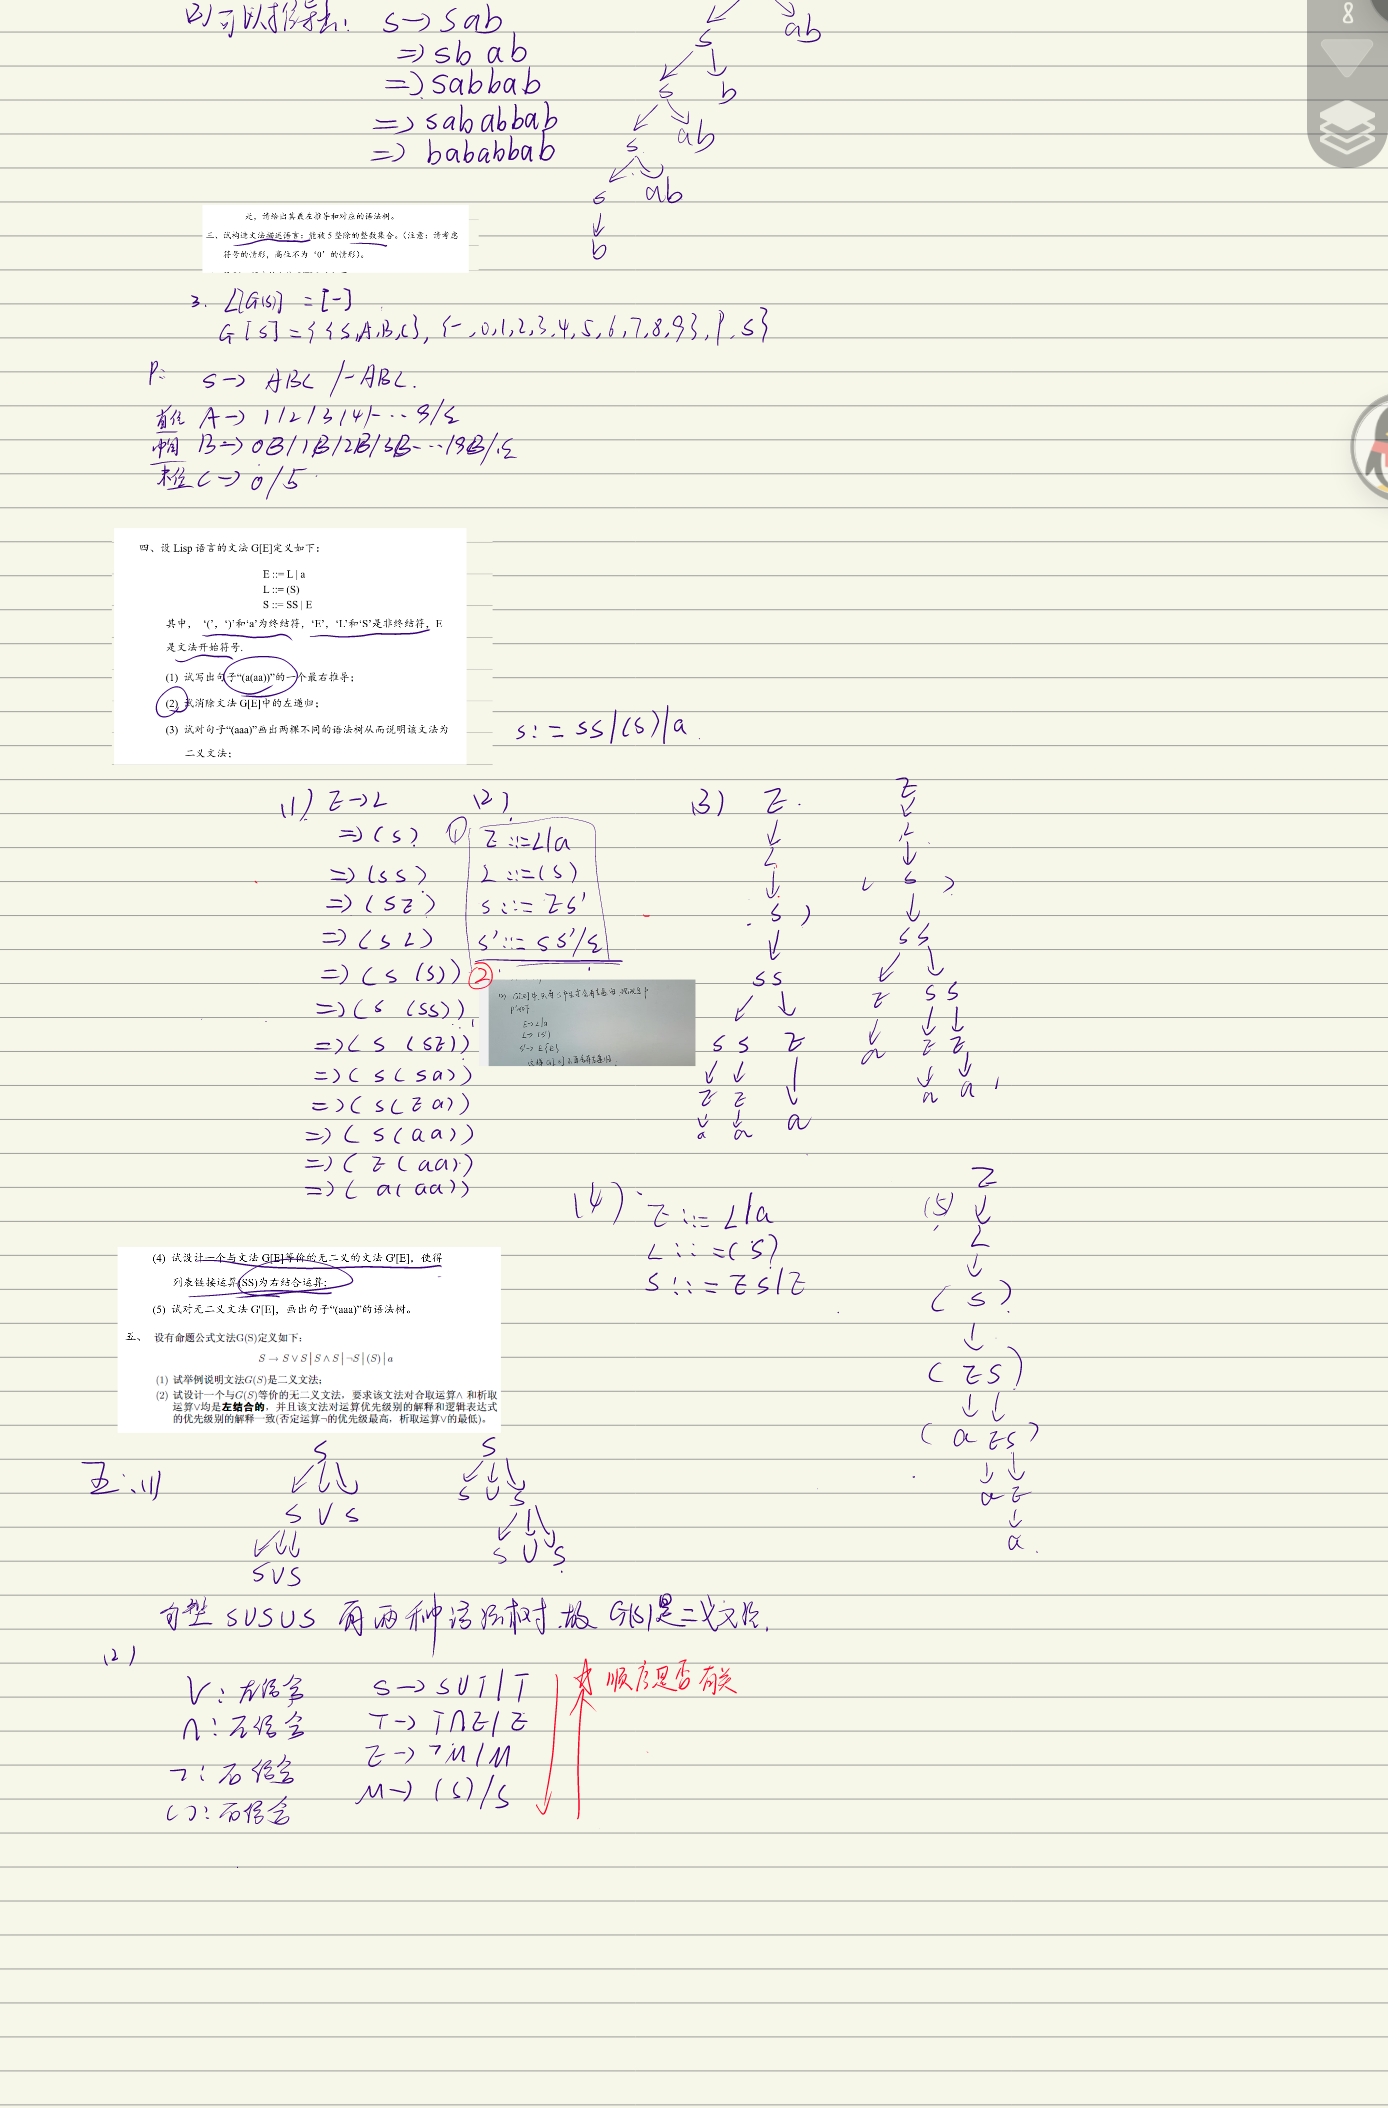 (2) 可以推导出: S → Sab
⇒ Sb ab
⇒ Sabbab
⇒ Sababbab
⇒ bababbab
S ab
S b
S ab
S ab
b
是, 请给出其最左推导和对应的语法树。
三、试构造文法描述语言: 能被 5 整除的整数集合。(注意: 请考虑
符号的情形, 高位不为‘0’的情形)。
3. L[G(S)] = [-]
G[S] = {{S,A,B,C}, {-,0,1,2,3,4,5,6,7,8,9}, P, S}
P: S → ABC / -ABC.
首位 A → 1/2/3/4/… 9/ε
中间 B → 0B/1B/2B/3B…/9B/ε
末位 C → 0/5
四、设 Lisp 语言的文法 G[E]定义如下:
E ::= L | a
L ::= (S)
S ::= SS | E
其中, ‘(’, ‘)’和‘a’为终结符, ‘E’, ‘L’和‘S’是非终结符, E
是文法开始符号.
(1) 试写出句子“(a(aa))”的一个最右推导;
(2) 试消除文法 G[E]中的左递归;
(3) 试对句子“(aaa)”画出两棵不同的语法树从而说明该文法为
二义文法;
S::= SS|(S)|a
(1) E → L
⇒ (S)
⇒ (SS)
⇒ (SE)
⇒ (SL)
⇒ (S(S))
⇒ (S(SS))
⇒ (S(SE))
⇒ (S(Sa))
⇒ (S(Ea))
⇒ (S(aa))
⇒ (E(aa))
⇒ (a(aa))
(2)
① E ::= L/a
L ::= (S)
S ::= ES'
S' ::= SS'/ε
②
E→L/a
L→(S)
(3) E
L
S )
SS
S S E
E E a
a a
E
L
( S )
SS
E S S
a E E
a a
(4) E ::= L/a
L ::= (S)
S ::= ES/E
(5) E
L
( S )
( ES )
( a ES )
a E
a
(4) 试设计一个与文法 G[E]等价的无二义的文法 G'[E], 使得
列表链接运算(SS)为右结合运算;
(5) 试对无二义文法 G'[E], 画出句子“(aaa)”的语法树。
五、 设有命题公式文法G(S)定义如下:
S → S ∨ S | S ∧ S | ¬S | (S) | a
(1) 试举例说明文法G(S)是二义文法;
(2) 试设计一个与G(S)等价的无二义文法, 要求该文法对合取运算∧ 和析取
运算∨均是左结合的, 并且该文法对运算优先级别的解释和逻辑表达式
的优先级别的解释一致(否定运算¬的优先级最高, 析取运算∨的最低)。
五:(1)
S
S ∨ S
S∨S
S
S ∨ S
S ∨ S
句型 S∨S∨S 有两种语法树.故 G(S)是二义文法.
(2)
∨: 左结合 S → S∨T/T
∧: 左结合 T → T∧E/E
¬: 右结合 E → ¬M/M
(): 右结合 M → (S)/S
顺序是否有关
8